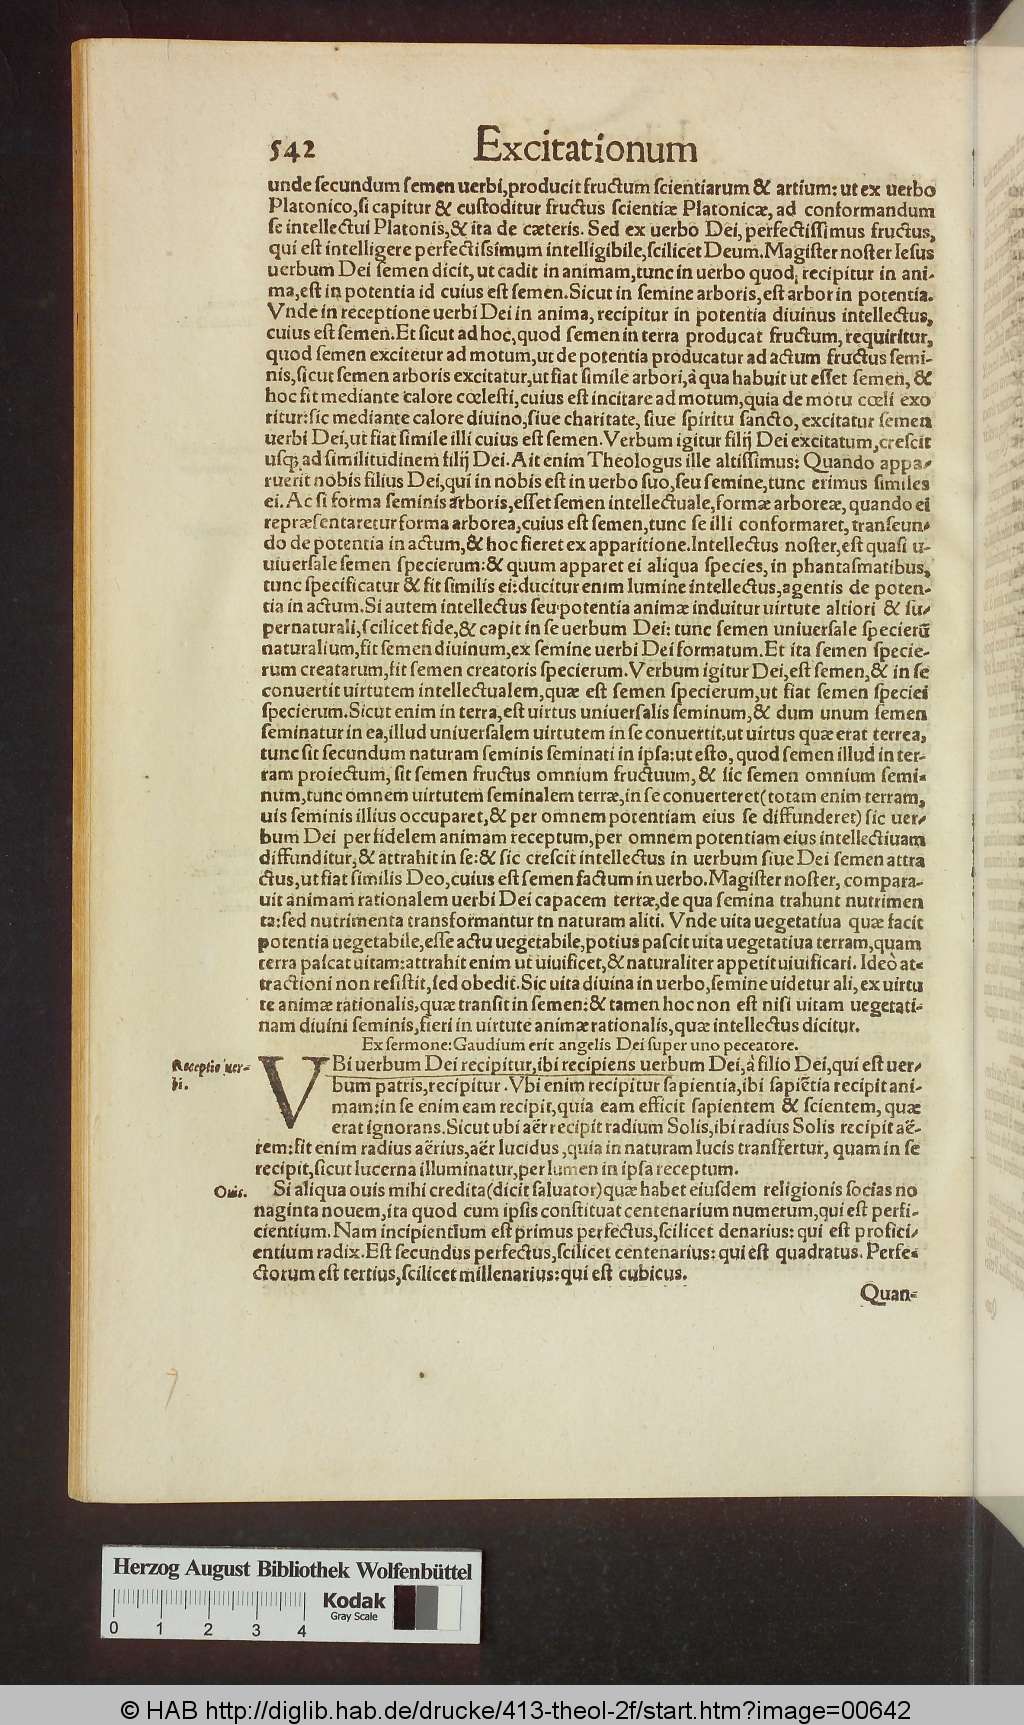 542 Excitationum
unde ſecundum ſemen uerbi, producit fructum ſcientiarum & artium: ut ex uerbo
Platonico, ſi capitur & cuſtoditur fructus ſcientiæ Platonicæ, ad conformandum
ſe intellectui Platonis, & ita de cæteris. Sed ex uerbo Dei, perfectiſſimus fructus,
qui eſt intelligere perfectiſsimum intelligibile, ſcilicet Deum. Magiſter noſter Ieſus
uerbum Dei ſemen dicit, ut cadit in animam, tunc in uerbo quod, recipitur in ani-
ma, eſt in potentia id cuius eſt ſemen. Sicut in ſemine arboris, eſt arbor in potentia.
Vnde in receptione uerbi Dei in anima, recipitur in potentia diuinus intellectus,
cuius eſt ſemen. Et ſicut ad hoc, quod ſemen in terra producat fructum, requiritur,
quod ſemen excitetur ad motum, ut de potentia producatur ad actum fructus ſemi-
nis, ſicut ſemen arboris excitatur, ut fiat ſimile arbori, à qua habuit ut eſſet ſemen, &
hoc fit mediante calore cœleſti, cuius eſt incitare ad motum, quia de motu cœli exo
ritur: ſic mediante calore diuino, ſiue charitate, ſiue ſpiritu ſancto, excitatur ſemen
uerbi Dei, ut fiat ſimile illi cuius eſt ſemen. Verbum igitur filij Dei excitatum, creſcit
uſq; ad ſimilitudinem filij Dei. Ait enim Theologus ille altiſſimus: Quando appa-
ruerit nobis filius Dei, qui in nobis eſt in uerbo ſuo, ſeu ſemine, tunc erimus ſimiles
ei. Ac ſi forma ſeminis arboris, eſſet ſemen intellectuale, formæ arboreæ, quando ei
repræſentaretur forma arborea, cuius eſt ſemen, tunc ſe illi conformaret, tranſeun-
do de potentia in actum, & hoc fieret ex apparitione. Intellectus noſter, eſt quaſi u-
uiuerſale ſemen ſpecierum: & quum apparet ei aliqua ſpecies, in phantaſmatibus,
tunc ſpecificatur & fit ſimilis ei: ducitur enim lumine intellectus, agentis de poten-
tia in actum. Si autem intellectus ſeu potentia animæ induitur uirtute altiori & ſu-
pernaturali, ſcilicet fide, & capit in ſe uerbum Dei: tunc ſemen uniuerſale ſpecierũ
naturalium, fit ſemen diuinum, ex ſemine uerbi Dei formatum. Et ita ſemen ſpecie-
rum creatarum, fit ſemen creatoris ſpecierum. Verbum igitur Dei, eſt ſemen, & in ſe
conuertit uirtutem intellectualem, quæ eſt ſemen ſpecierum, ut fiat ſemen ſpeciei
ſpecierum. Sicut enim in terra, eſt uirtus uniuerſalis ſeminum, & dum unum ſemen
ſeminatur in ea, illud uniuerſalem uirtutem in ſe conuertit, ut uirtus quæ erat terrea,
tunc ſit ſecundum naturam ſeminis ſeminati in ipſa: ut eſto, quod ſemen illud in ter-
ram proiectum, ſit ſemen fructus omnium fructuum, & ſic ſemen omnium ſemi-
num, tunc omnem uirtutem ſeminalem terræ, in ſe conuerteret (totam enim terram,
uis ſeminis illius occuparet, & per omnem potentiam eius ſe diffunderet) ſic uer-
bum Dei per fidelem animam receptum, per omnem potentiam eius intellectiuam
diffunditur, & attrahit in ſe: & ſic creſcit intellectus in uerbum ſiue Dei ſemen attra
ctus, ut fiat ſimilis Deo, cuius eſt ſemen factum in uerbo. Magiſter noſter, compara-
uit animam rationalem uerbi Dei capacem terræ, de qua ſemina trahunt nutrimen
ta: ſed nutrimenta transformantur tn naturam aliti. Vnde uita uegetatiua quæ facit
potentia uegetabile, eſſe actu uegetabile, potius paſcit uita uegetatiua terram, quam
terra paſcat uitam: attrahit enim ut uiuificet, & naturaliter appetit uiuificari. Ideò at-
tractioni non reſiſtit, ſed obedit. Sic uita diuina in uerbo, ſemine uidetur ali, ex uirtu
te animæ rationalis, quæ tranſit in ſemen: & tamen hoc non eſt niſi uitam uegetati-
nam diuini ſeminis, fieri in uirtute animæ rationalis, quæ intellectus dicitur.
Ex ſermone: Gaudium erit angelis Dei ſuper uno peccatore.
Receptio uer-
bi.
VBi uerbum Dei recipitur, ibi recipiens uerbum Dei, à filio Dei, qui eſt uer-
bum patris, recipitur. Vbi enim recipitur ſapientia, ibi ſapiẽtia recipit ani-
mam: in ſe enim eam recipit, quia eam efficit ſapientem & ſcientem, quæ
erat ignorans. Sicut ubi aër recipit radium Solis, ibi radius Solis recipit aë-
rem: fit enim radius aërius, aër lucidus, quia in naturam lucis transfertur, quam in ſe
recipit, ſicut lucerna illuminatur, per lumen in ipſa receptum.
Ouis.
Si aliqua ouis mihi credita (dicit ſaluator) quæ habet eiuſdem religionis ſocias no
naginta nouem, ita quod cum ipſis conſtituat centenarium numerum, qui eſt perfi-
cientium. Nam incipientium eſt primus perfectus, ſcilicet denarius: qui eſt profici-
entium radix. Eſt ſecundus perfectus, ſcilicet centenarius: qui eſt quadratus. Perfe-
ctorum eſt tertius, ſcilicet millenarius: qui eſt cubicus.
Quan-
Herzog August Bibliothek Wolfenbüttel
Kodak
Gray Scale
0 1 2 3 4
© HAB http://diglib.hab.de/drucke/413-theol-2f/start.htm?image=00642